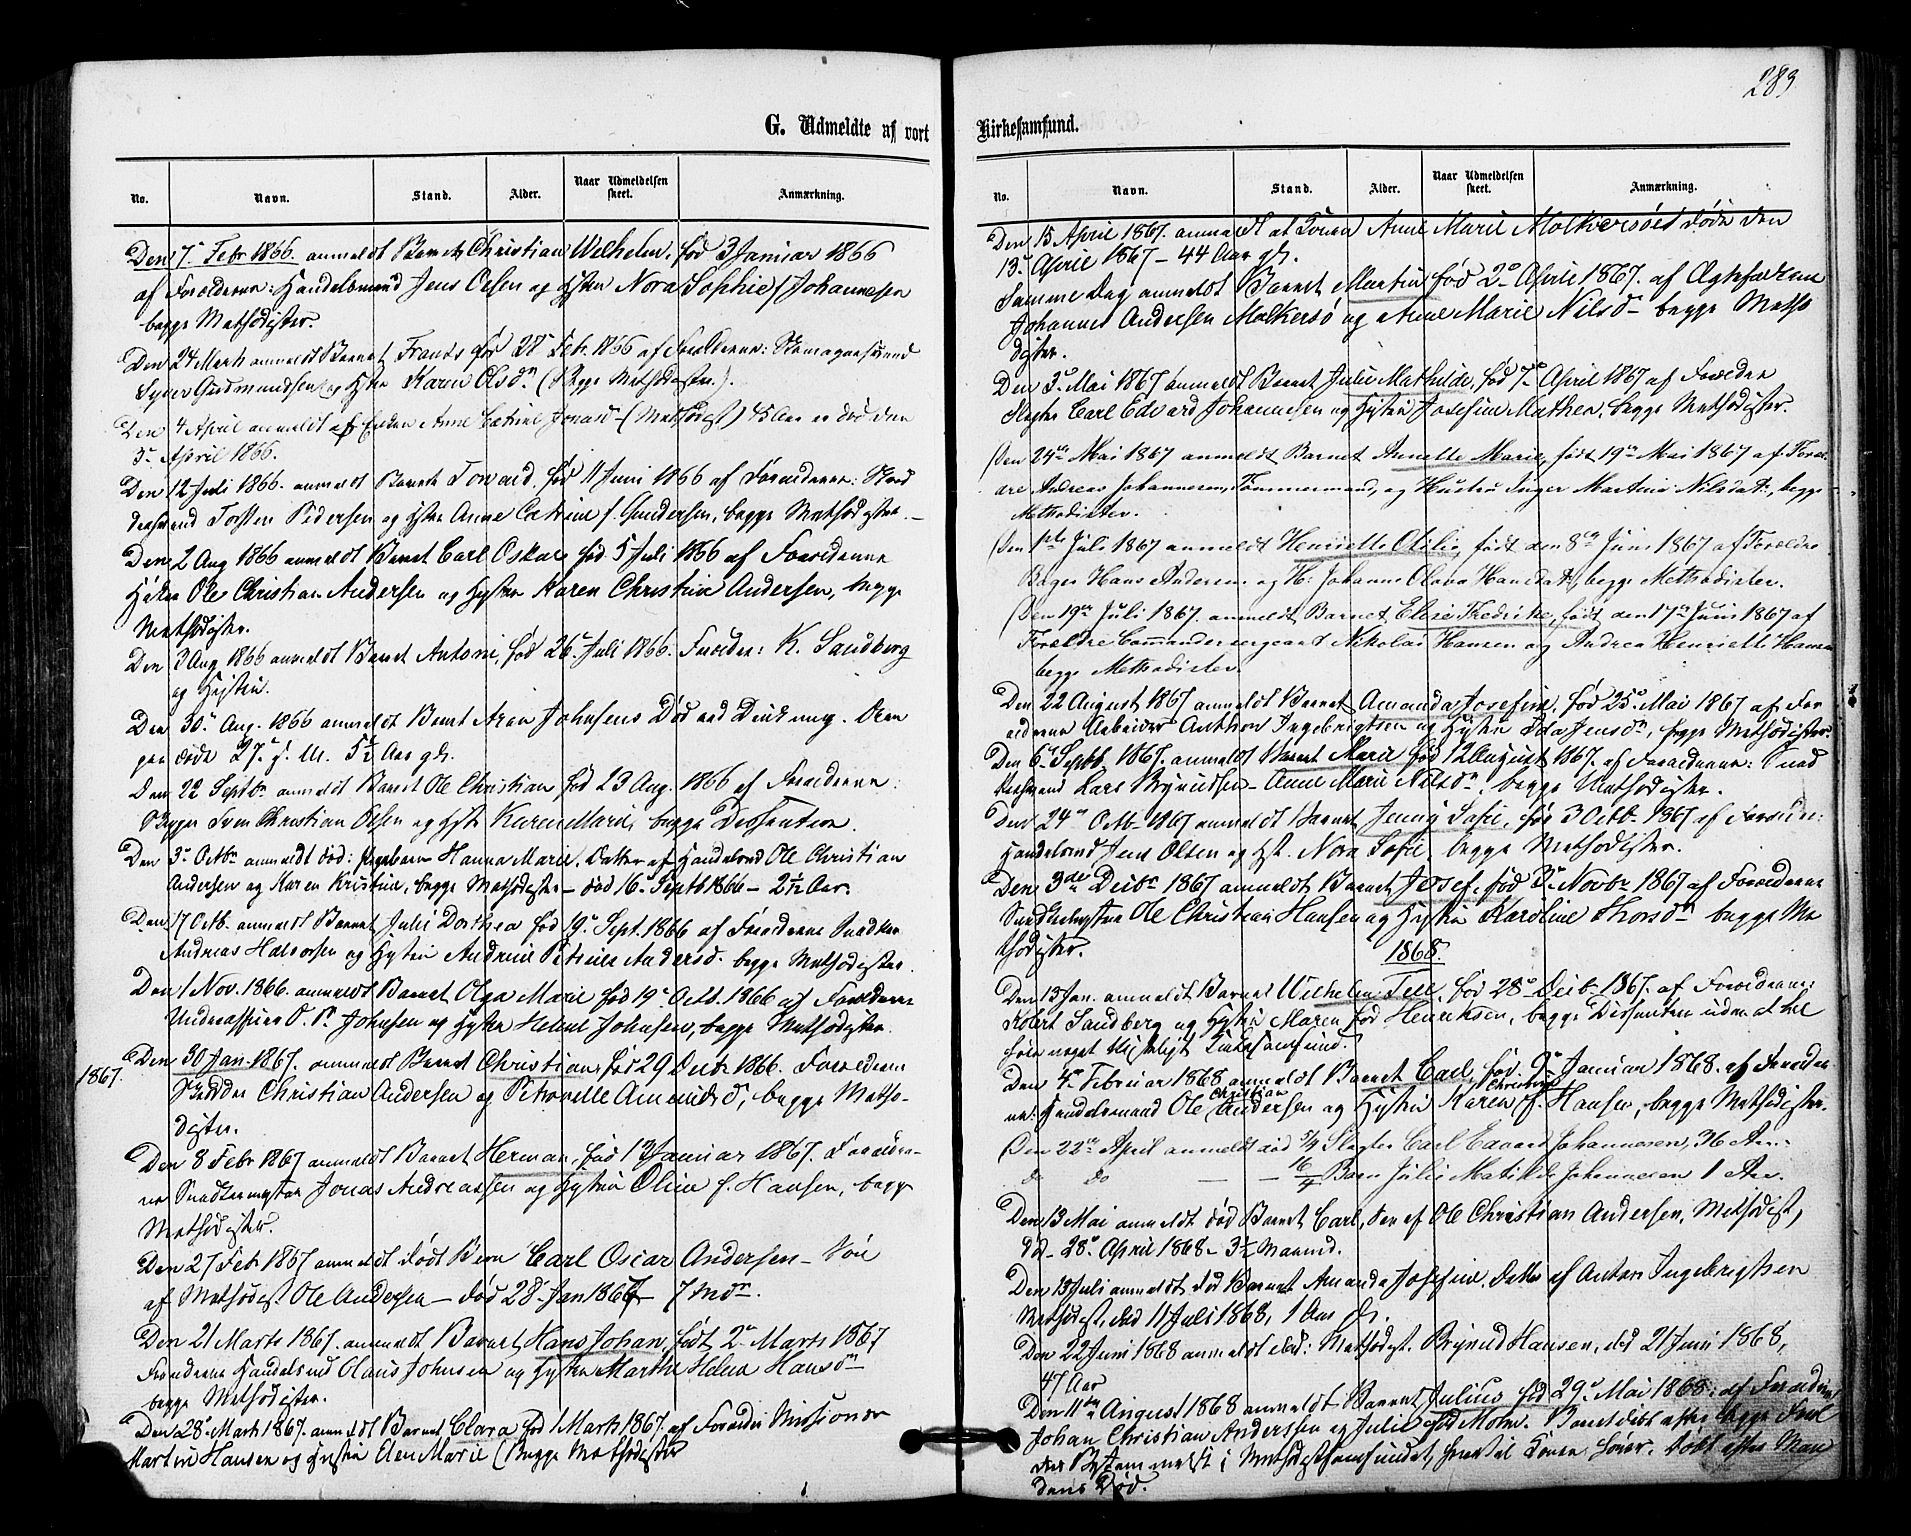 283
G. Udmeldte af vort
No. Navn. Stand. Alder. Naar Udmeldelsen skeet. Anmærkning.
Den 7de Febr 1866. anmeldt Barnet Christian Wilhelm, fød 3 Januar 1866
af Forældrene: Handelsmand Jens Olsen og Hustru Nora Sophie f Johannesen
begge Methodister.
Den 24 Marts anmeldt Barnet Frants fød 28 Feb. 1866 af Forældrene: Skomagersvend
Syver Gudmundsen og Hustru Karen Olsdn (Begge Methodister.)
Den 4 April anmeldt Enken Anne Catrine Jonasd (Methodist) 45 Aar er død den
3 April 1866.
Den 12 Juli 1866. anmeldt Barnet Torvald, fød 11 Juni 1866 af Forældrene.
Torsten Pedersen og Hustru Anne Catrine f. Gundersen, begge Methodister.
Den 2 Aug 1866 anmeldt Barnet Carl Oskar fød 5 Juli 1866 af Forældrene
Ole Christian Andersen og Hustru Karen Christine Andersen, begge
Methodister.
Den 3 Aug 1866 anmeldt Barnet Antoni, fød 26 Juli 1866. Forælder: K. Sandberg
og Hustru.
Den 30 Aug. 1866 anmeldt Johnsens Død ved
døde 27. f. M. 5½ Aar gl.
Den 22 Septbr anmeldt Barnet Ole Christian fød 23 Aug. 1866 af Forældrene:
Sven Christian Olsen og Hust Karen Marie, begge Dissentere.
Den 3 Octbr anmeldt død: Hanna Marie, Datter af Handelsmd Ole Christian
Andersen og Karen Kristine, begge Methodister – død 16 Septb 1866 – 2 1/12 Aar.
Den 17 Octb. anmeldt Barnet Julie Dorthea fød 19 Sept. 1866 af Forældrene Snedker
Andreas Halvorsen og Hustru Andrine Petrine Andersd. begge Methodister.
Den 1 Nov. 1866. anmeldt Barnet Olga Marie fød 19 Octb. 1866 af Forældrene
Johnsen og Hustru Helene Johnsen, begge Methodister.
1867. Den 30 Jan. 1867. anmeldt Barnet Christian, fød 29 Decbr 1866. Forældrene
Christian Andersen og Petronille Amundsd, begge Metho-
dister.
Den 8 Febr 1867 anmeldt Barnet Herman, fød 13 Januar 1867. Forældre-
ne Snedkermester Jonas Andreassen og Hustru Oline f. Hansen, begge
Methodister.
Den 27 Feb 1867 anmeldt død Barn Carl Oscar Andersen – Søn
af Methodist Ole Andersen – død 28 Jan 1867 – 7 Mdr.
Den 21 Marts 1867. anmeldt Barnet Hans Johan, født 2 Marts 1867
Forældrene Handelsmd Olaus Johnsen og Hustru Martha Helene Hansdn
begge Methodister.
Den 28 Marts 1867. anmeldt Barnet Clara fød 1 Marts 1867. af Forældre Missionær
Martin Hansen og Hustru Elen Marie (Begge Methodister
Kirkesamfund.
No. Navn. Stand. Alder. Naar Udmeldelsen skeet. Anmærkning.
Den 15 April 1867. anmeldt at Konen Anne Marie Molkersøes døde den
13 April 1867 – 44 Aar gl.
Samme Dag anmeldt Barnet Martin fød 2 April 1867. af Ægtefolkene
Johannes Andersen Molkersø og Anne Marie Nilsd – begge Metho
dister.
Den 3 Mai 1867 anmeldt Barnet Julie Mathilde, fød 7 April 1867 af Forældre
Slagter Carl Edvard Johannesen og Hustru Josefine Mathea, begge Methodister.
Den 24de Mai 1867 anmeldt Barnet Annette Marie, født 19de Mai 1867 af Foræl-
dre Andreas Johannesen, Tømmermand, og Hustru Inger Martine Nilsdat:, begge
Methodister.
Den 1ste Juli 1867 anmeldt Henriette Otilie, født den 8de Juni 1867 af Forældre
Bager Hans Andersen og H: Johanne Olava Hansdat:, begge Methodister.
Den 19de Juli 1867. anmeldt Barnet Elise Fredrikke, født den 17de Juni 1867 af
Forældre Commandersergeant Nikolai Hansen og Andrea Henriette Hansen
begge Methodister.
Den 22 August 1867 anmeldt Barnet Amanda Josefine, fød 25 Mai 1867 af For
ældrene Arbeider Anthon Ingebrigtsen og Hustru Ida Jensdn, begge Methodister.
Den 6 Septb. 1867. anmeldt Barnet Marie fød 12 August 1867. af Forældrene: Sned
kersvend Lars Brynildsen – Anne Marie Nilsdn, begge Methodister.
Den 24 Octb 1867 anmeldt Barnet Jenny Sofie, fød 3 Octb 1867 af Forældre:
Handelsmd Jens Olsen og Hst. Nora Sofie, begge Methodister.
Den 3de Decbr 1867 anmeldt Barnet Josef, fød 3 Novbr 1867 af Forældrene
Snedkermester Ole Christian Hansen og Hustru Karoline Thorsdn begge Me
thodister.
1868.
Den 13 Jan. anmeldt Barnet Wilhelm Tell, fød 28 Decbr 1867. af Forældrene:
Robert Sandberg og Hustru Maren fød Henriksen, begge Dissentere uden at til
høre noget Kirkesamfund.
Den 4 Februar 1868 anmeldt Barnet Carl, fød. 9 Januar 1868. af Forældre-
ne: Handelsmand Ole Christian Andersen og Hustru Karen Christine f. Hansen, begge Methodister.
Den 22de April anmeldt død 5/4 Slagter Carl Edvard Johannesen, 36 Aar.
do Do – – 16/4 Barn Julie Matilde Johannesen 1 Aar.
Den 13 Mai anmeldt død Barnet Carl, Søn af Ole Christian Andersen, Methodist,
død 28 April 1868 – 3½ Maaned.
Den 13 Juli anmeldt død Barnet Amanda Josefine Datter af Anton Ingebrigtsen
Methodist, død 11 Juli 1868, 1 Aar gl.
Den 22 Juni 1868 anmeldt død: Methodist. Brynild Hansen, død 21 Juni 1868,
47 Aar
Den 11te August 1868 anmeldt Barnet Julius fød 29 Mai 1868: af Forældrene
Johan Christian Anderssen og Julie født Holm. Barnet døbt efter begge Foræl
dres Bestemmelse i Methodistsamfundet, hvortil Konen hører, døbt efter Man
dens Død.